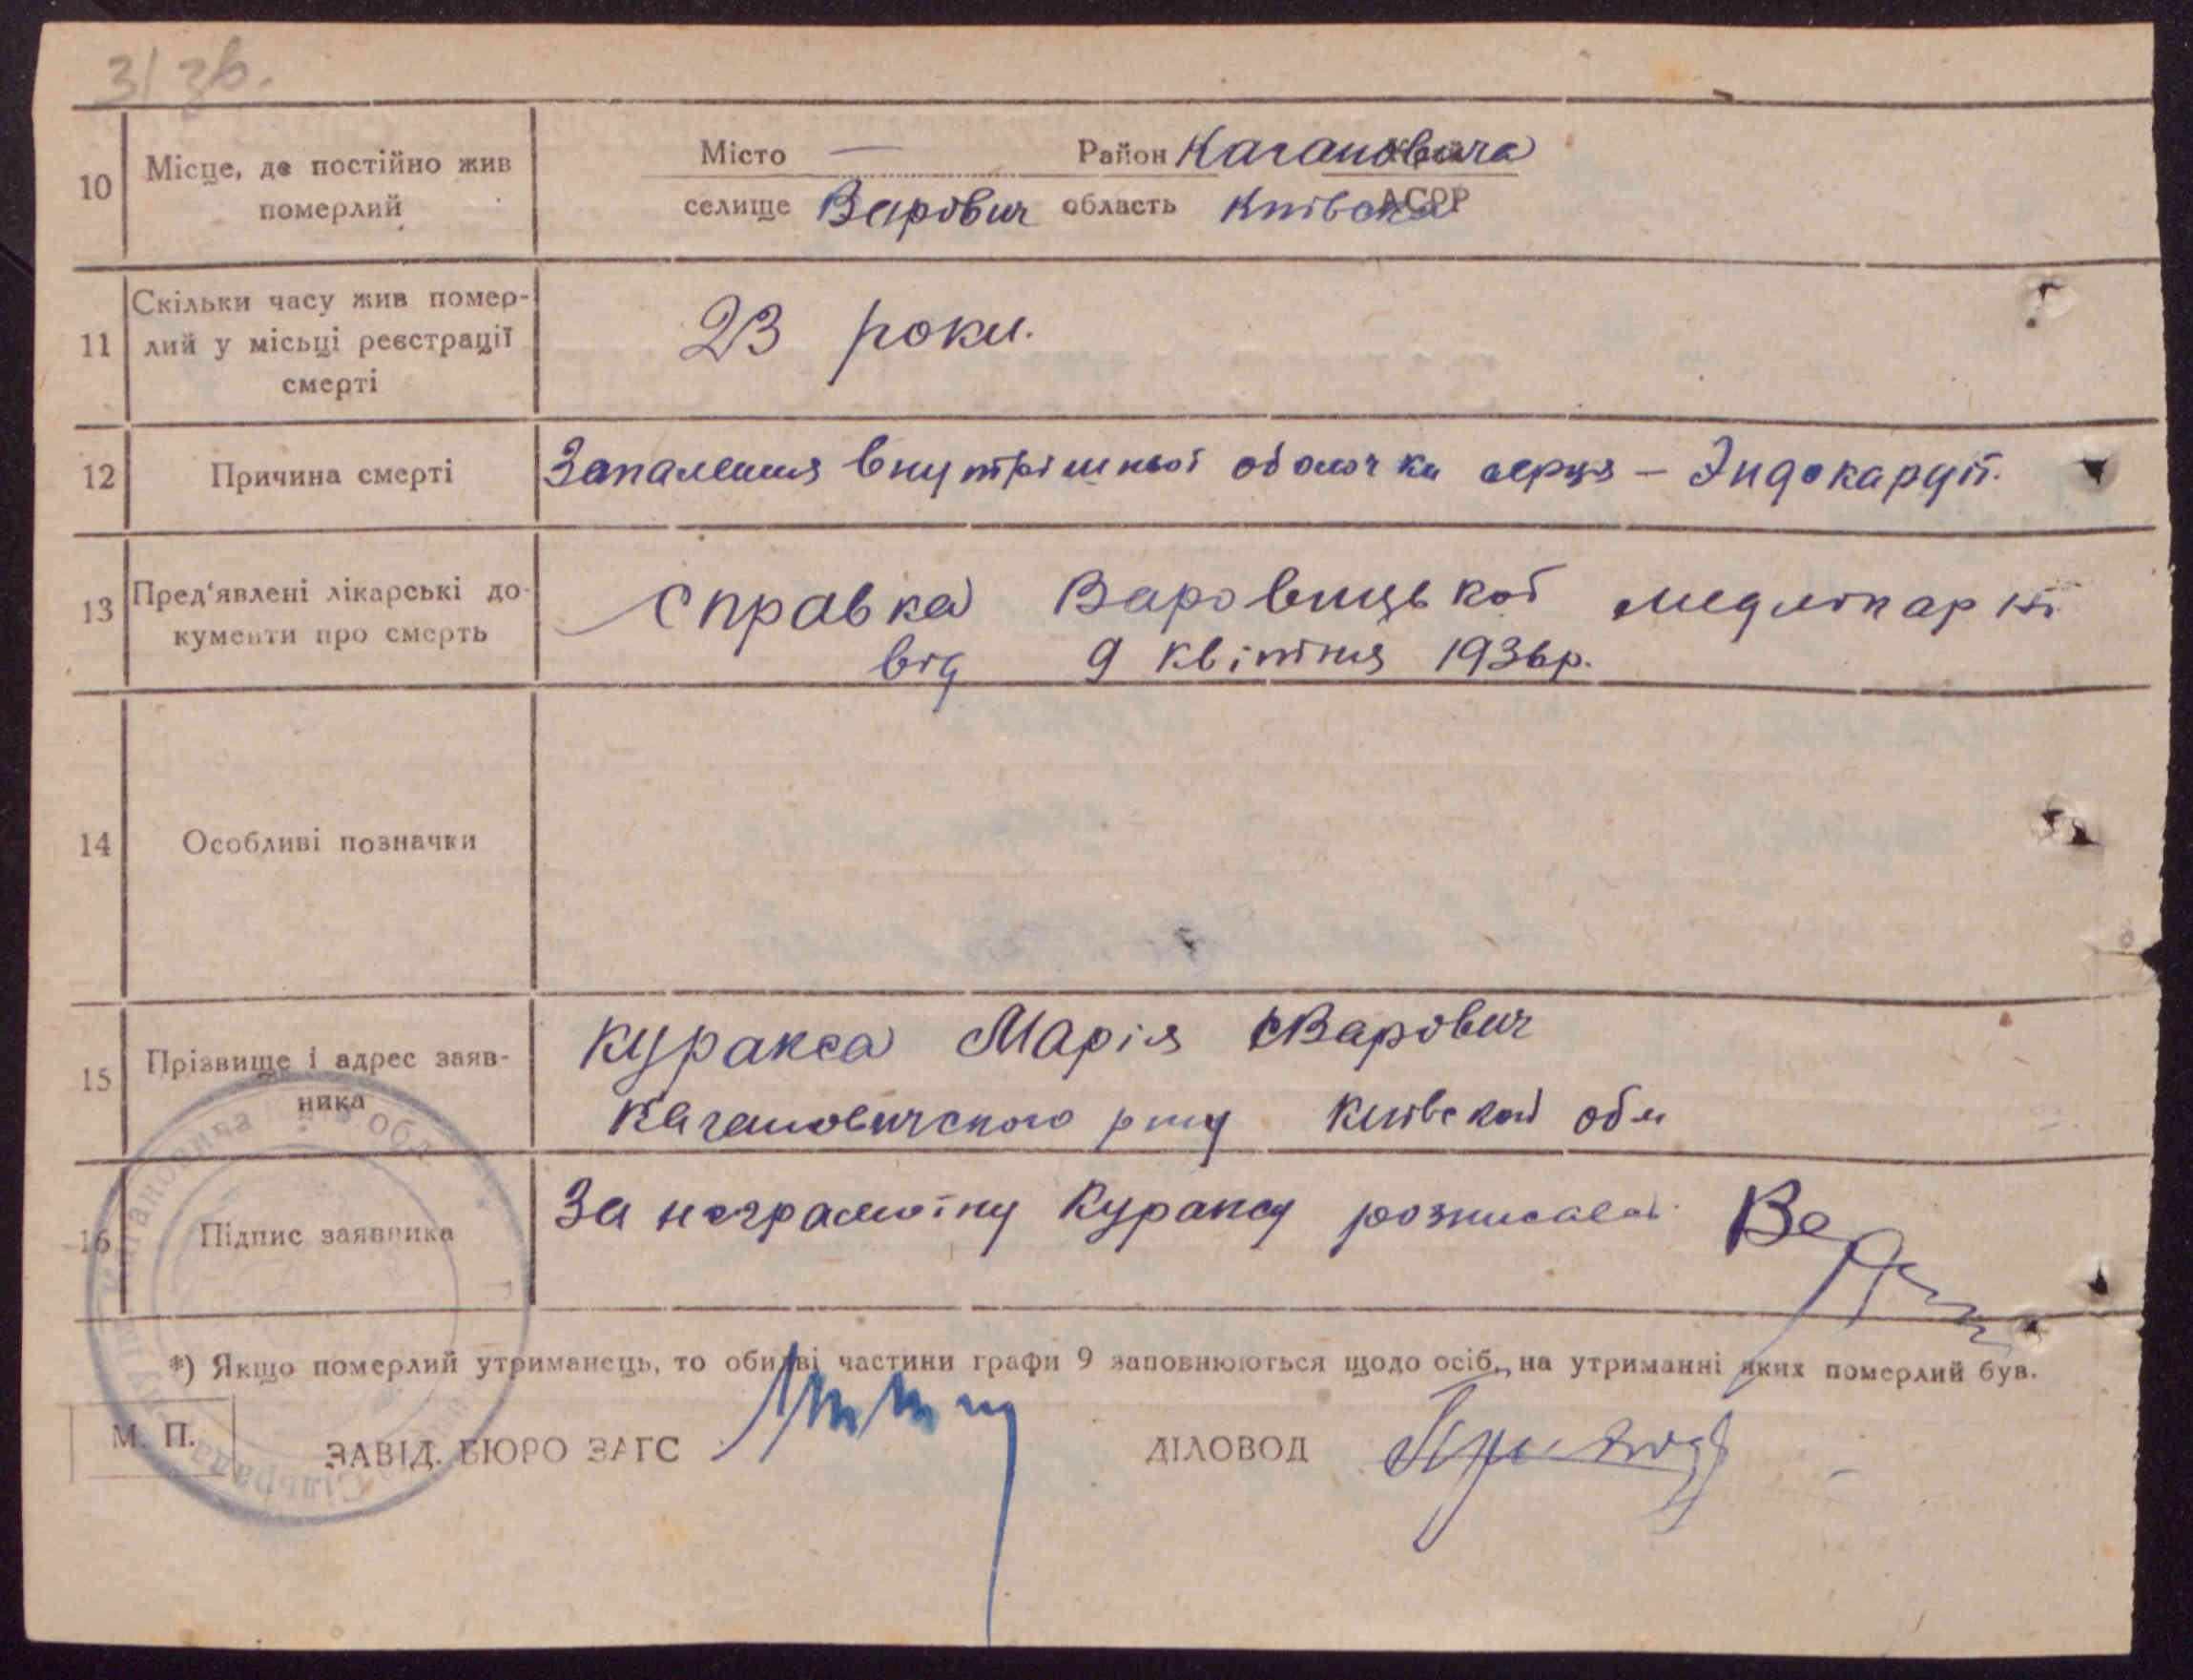 31 зв.
10 Місце, де постійно жив померлий
Місто — Район Кагановича
селище Варович область Київська АСРР
11 Скільки часу жив помер-
лий у місьці реєстрації
смерті
23 роки.
12 Причина смерті
Запалення внутрішньої оболочки серця – Эндокардит.
13 Пред'явлені лікарські до-
кументи про смерть
Справка Варовицької медлікарні
від 9 квітня 1936р.
14 Особливі позначки
15 Прізвище і адрес заяв-
ника
Куракса Марія с Варович
Кагановичского р-ну Київскої обл
16 Підпис заявника
За неграмотну Кураксу розписалас
*) Якщо померлий утриманець, то обидві частини графи 9 заповнюються щодо осіб, на утриманні яких померлий був.
М. П.
ЗАВІД. БЮРО ЗАГС
ДІЛОВОД
Кагановича обл
Сільрада